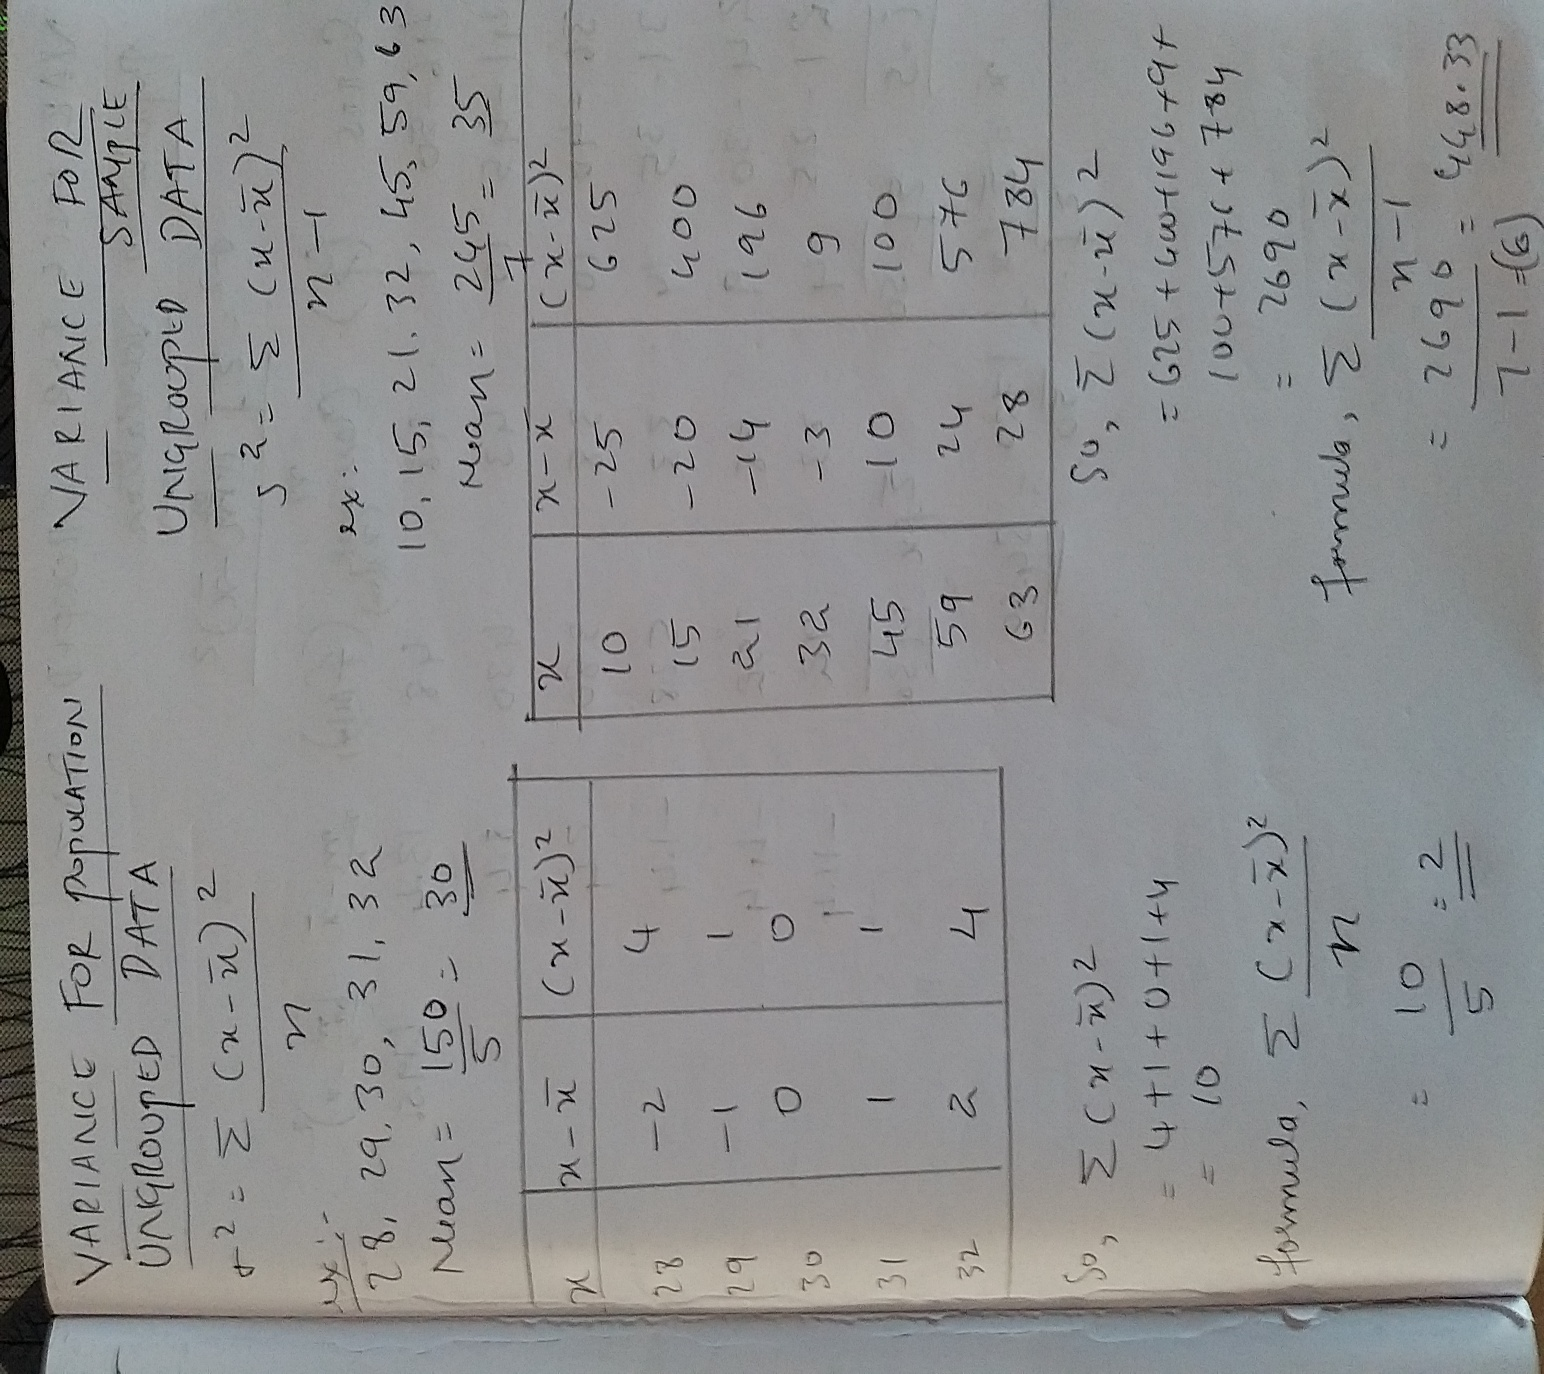 VARIANCE FOR POPULATION
UNGROUPED DATA
σ² = Σ (x - x̄)²
n
ex:-
28, 29, 30, 31, 32
Mean = 150 = 30
5
x x - x̄ (x - x̄)²
28 -2 4
29 -1 1
30 0 0
31 1 1
32 2 4
So, Σ (x - x̄)²
= 4 + 1 + 0 + 1 + 4
= 10
formula, Σ (x - x̄)²
n
= 10 = 2
5
VARIANCE FOR
SAMPLE
UNGROUPED DATA
s² = Σ (x - x̄)²
n - 1
ex:
10, 15, 21, 32, 45, 59, 63
Mean = 245 = 35
7
x x - x̄ (x - x̄)²
10 -25 625
15 -20 400
21 -14 196
32 -3 9
45 -10 100
59 24 576
63 28 784
So, Σ (x - x̄)²
= 625 + 400 + 196 + 9 +
100 + 576 + 784
= 2690
formula, Σ (x - x̄)²
n - 1
= 2690 = 448.33
7 - 1 = (6)